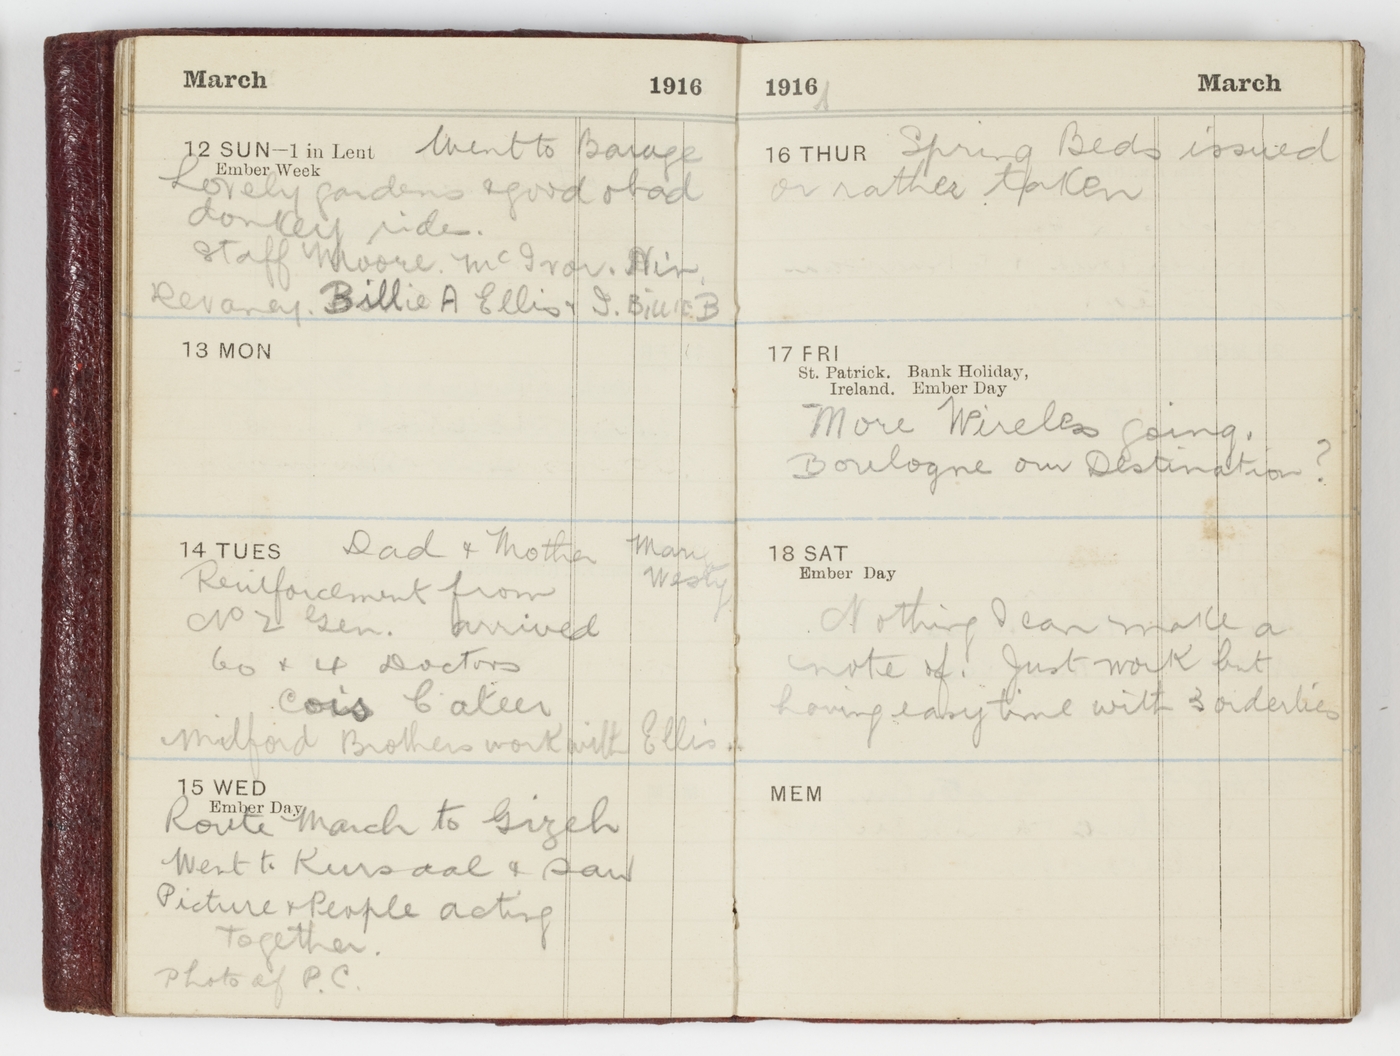 March 1916
12 SUN—1 in Lent Went to Barage
Ember Week
Lovely gardens & good & bad
donkey ride.
Staff Moore. McIvor.
Devaney. Billie A Ellis & I. Billie B
13 MON
14 TUES Dad & Mother Mary
Westy
Reinforcement from
No 2 Gen. arrived
60 & 4 Doctors
Milford Brothers work with Ellis.
15 WED
Ember Day
Route March to Gizeh
Went to Kursaal & saw
Picture & People acting
together.
Photo of P.C.
1916 March
16 THUR Spring Beds issued
or rather taken
17 FRI
St. Patrick. Bank Holiday,
Ireland. Ember Day
More Wireless going.
Boulogne our Destination?
18 SAT
Ember Day
Nothing I can make a
note of. Just work but
having easy time with 3 orderlies
MEM